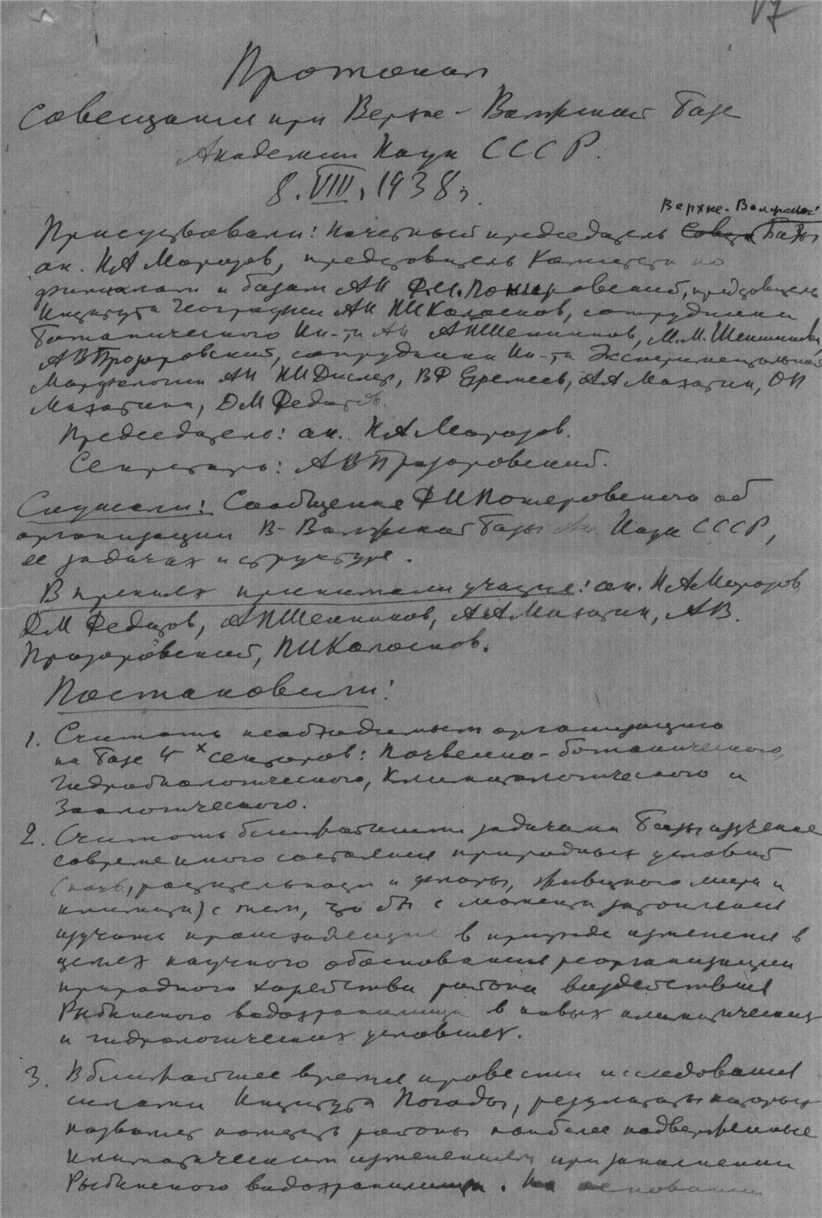 17
Протокол
совещания при Верхне-Волжской Базе
Академии Наук СССР.
8.VIII.1938г.
Верхне-Волжской
Присутствовали: Почетный председатель Совета Базы
ак. НА Морозов, представитель Комитета по
филиалам и базам АН Ф.И. Пошеровский, представитель
Института Географии АН ПИ Колосков, сотрудники
Ботанического Ин-та АН АП Шенников, М.М. Шенникова,
АВ Прозоровский, сотрудники Ин-та Экспериментальной
Морфологии АН НИ Дислер, ВФ Еремеев, АА Махотин, ОП
Махотина, ДМ Федотов.
Председатель: ак. НА Морозов.
Секретарь: АВ Прозоровский.
Слушали: Сообщение ФИ Пошеровского об
организации В-Волжской Базы Ак. Наук СССР,
ее задачах и структуре.
В прениях принимали участие: ак. НА Морозов
ДМ Федотов, АП Шенников, АА Махотин, АВ.
Прозоровский, ПИ Колосков.
Постановили:
1. Считать необходимым организацию
на Базе 4х секторов: Почвенно-ботанического,
Гидробиологического, Климатологического и
Зоологического.
2. Считать ближайшими задачами Базы изучение
современного состояния природных условий
(почв, растительности и флоры, животного мира и
климата) с тем, что бы с момента затопления
изучать происходящие в природе изменения в
целях научного обоснования реорганизации
природного хозяйства района воздействия
Рыбинского водохранилища в новых климатических
и гидрологических условиях.
3. В ближайшее время провести исследования
силами Института Погоды, результаты которых
позволят наметить районы наиболее подверженные
климатическим изменениям при заполнении
Рыбинского водохранилища. На основании